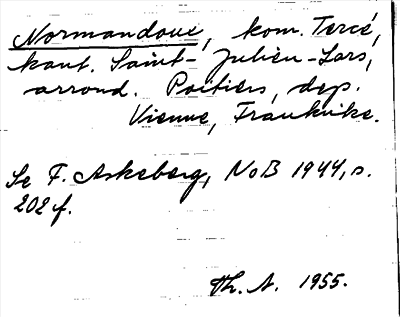 Normandoue, kom. Tercé,
kant. Saint-Julien-Lars,
arrond. Poitiers, dep.
Vienne, Frankrike.
Se F. Askeberg, NoB 1944, s.
202 f.
Th. A. 1955.